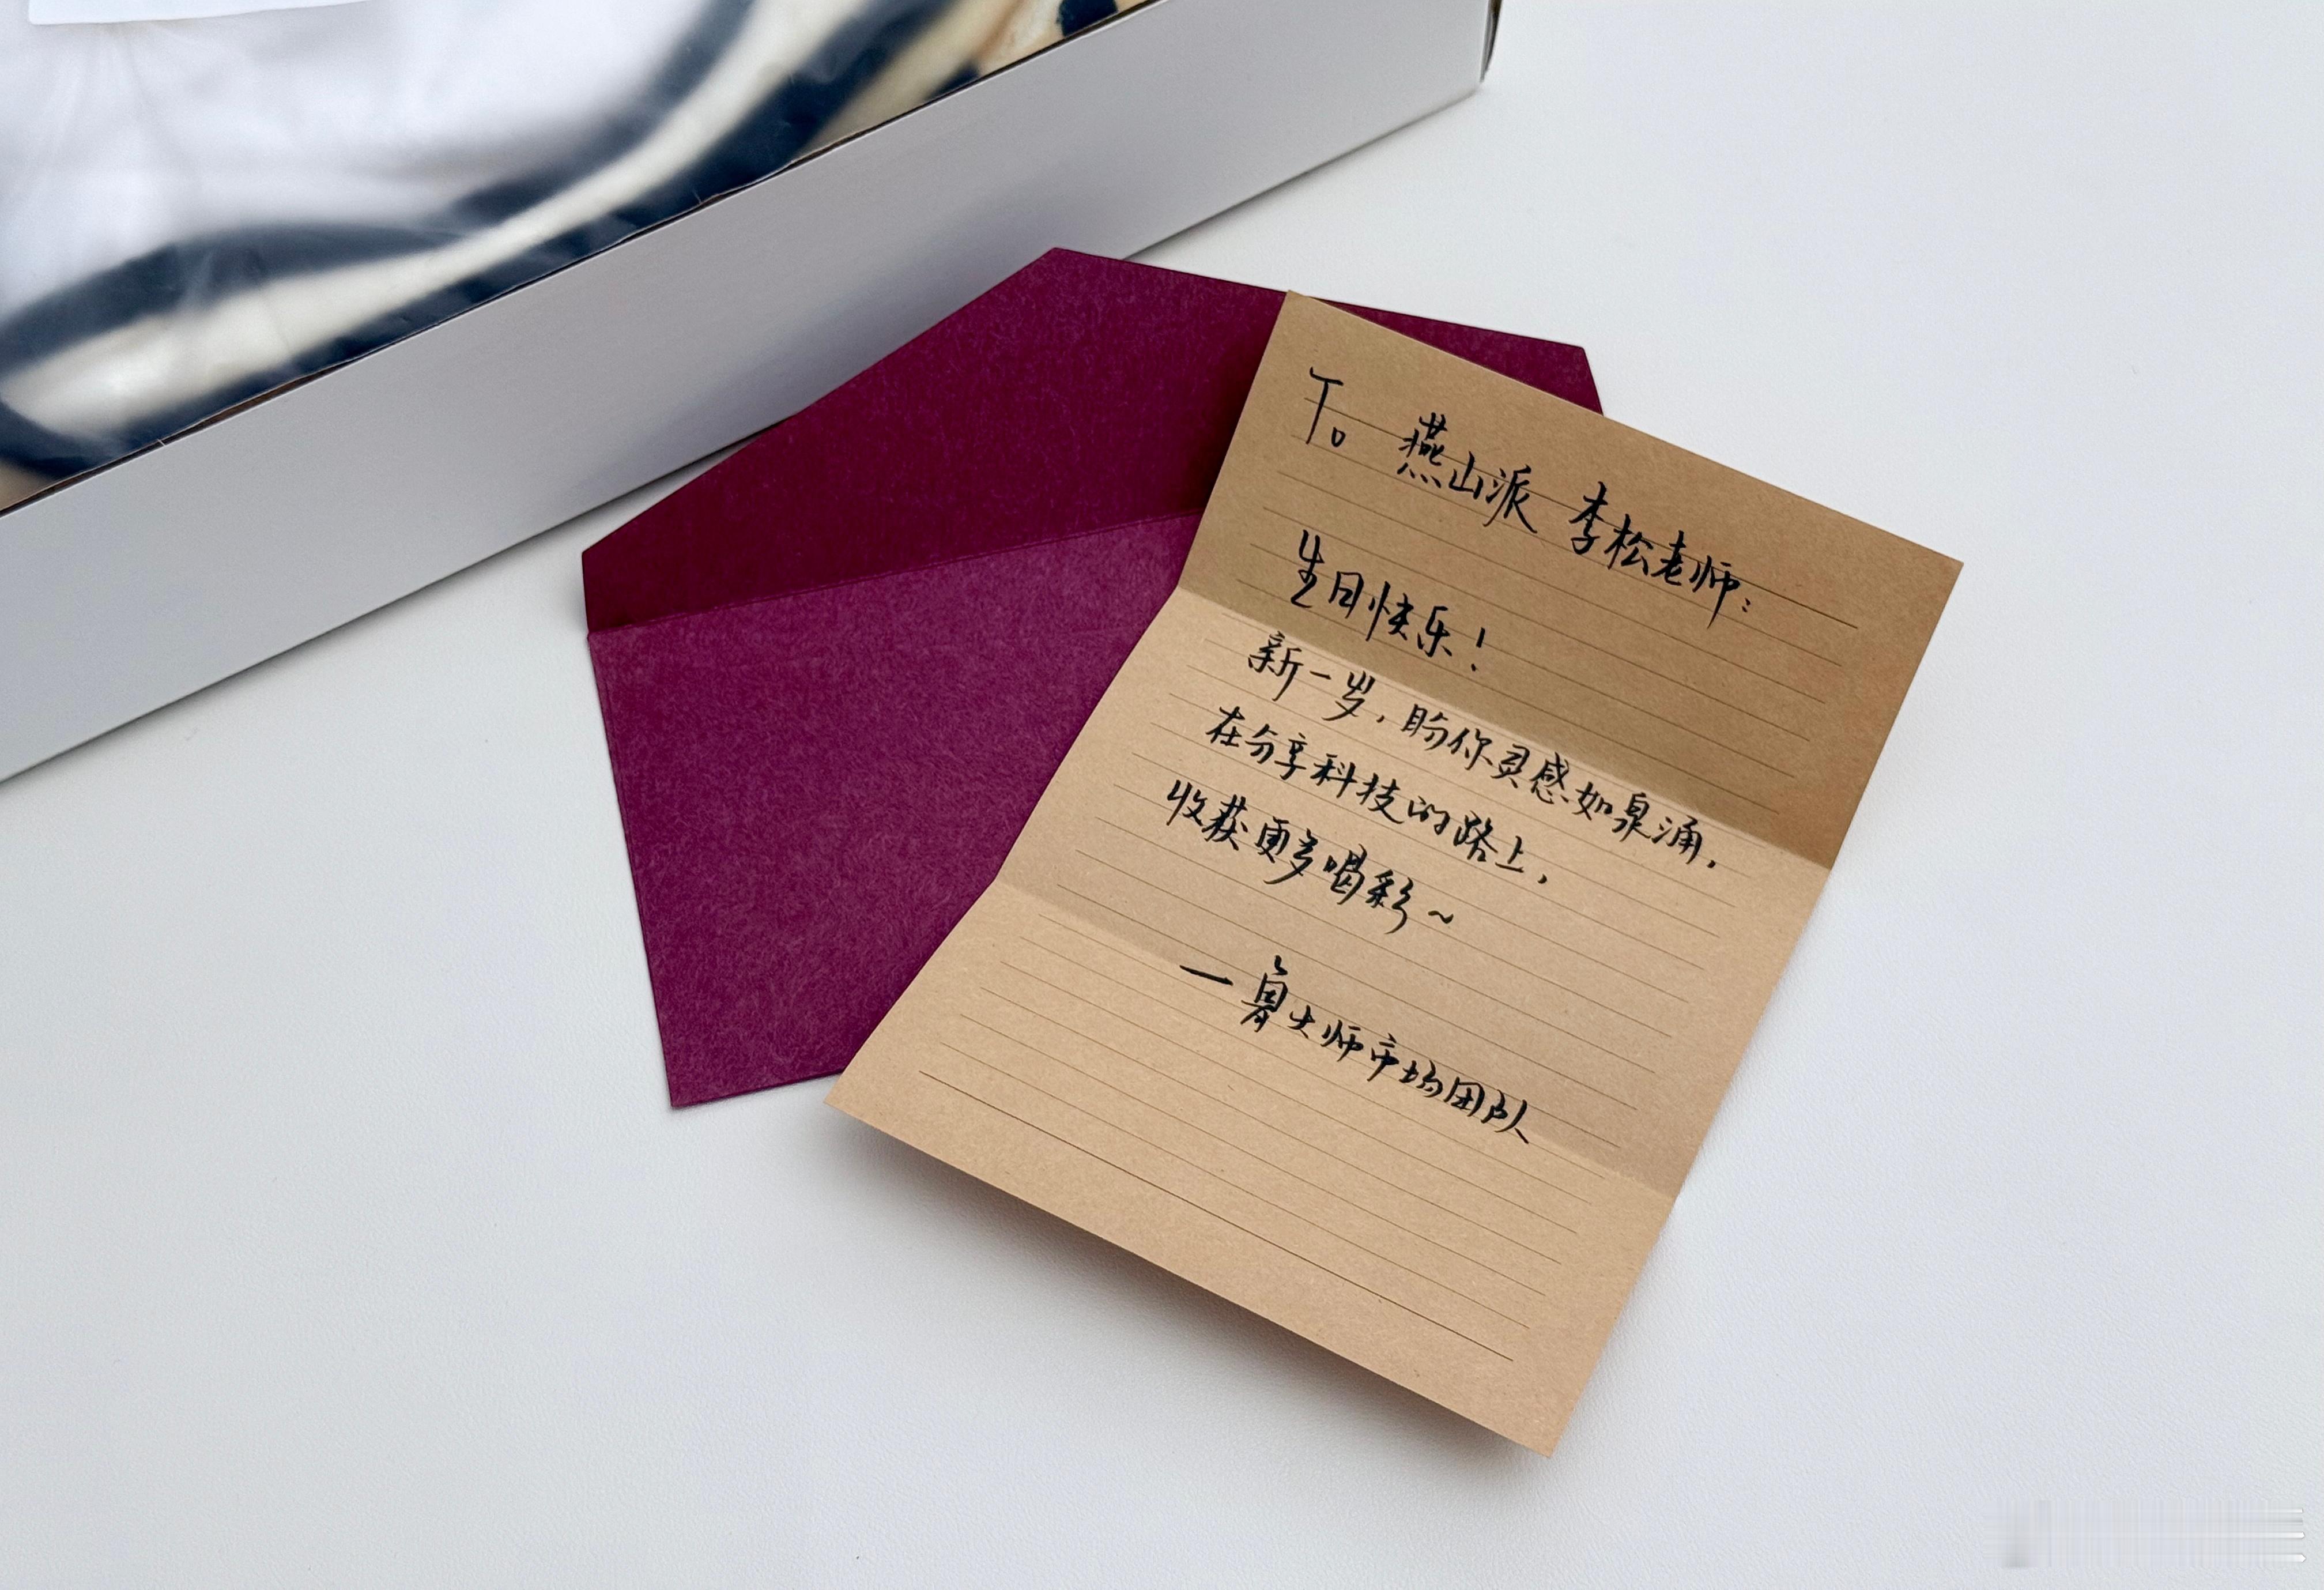 To 燕山派 李松老师：
生日快乐！
新一岁，盼你灵感如泉涌，
在分享科技的路上，
收获更多喝彩～
—鲁大师市场团队